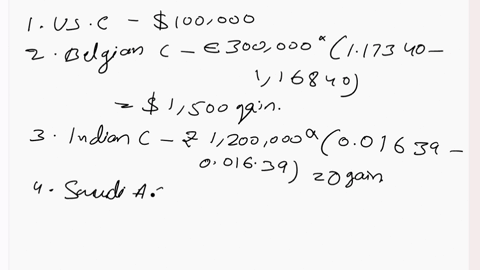 1. US.C - $100,000
2. Belgian C - €300,000 * (1.17340 -
1,16840)
= $1,500 gain.
3. Indian C - ₹ 1,200,000 * (0.01639 -
0.016.39) = 0 gain
4. Saudi A.